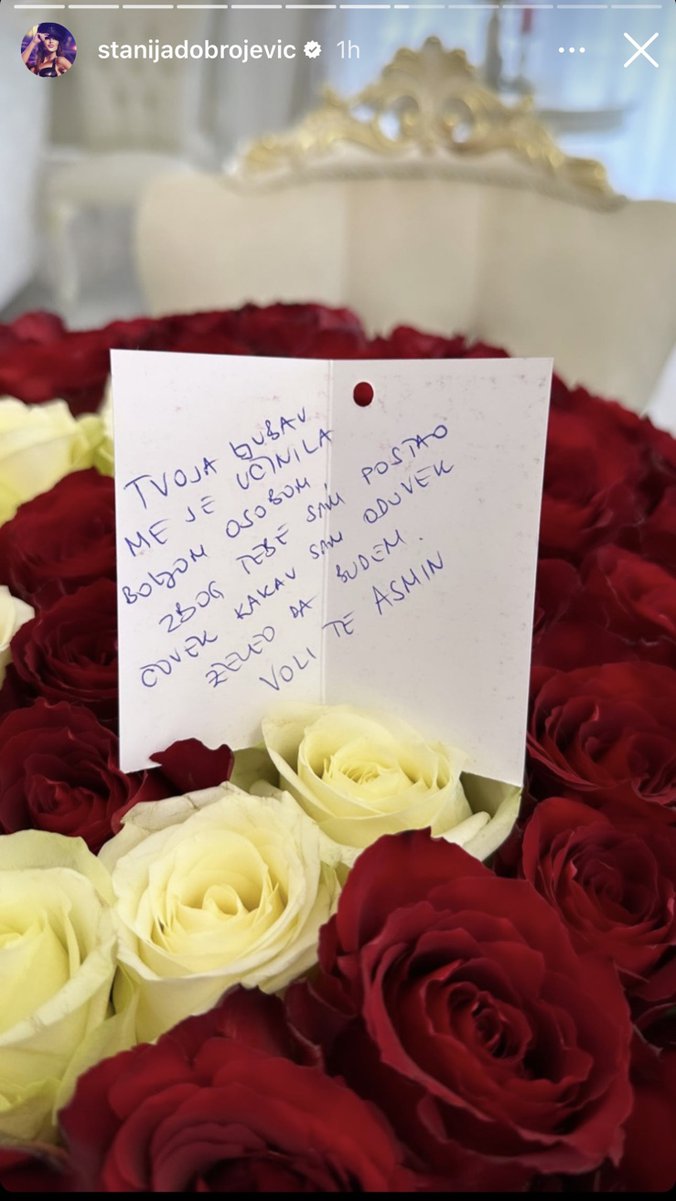 stanijadobrojevic 1h
TVOJA LJUBAV
ME JE UČINILA
BOLJOM OSOBOM
ZBOG TEBE SAM POSTAO
ČOVEK KAKAV SAM ODUVEK
ŽELEO DA BUDEM.
VOLI TE ASMIN